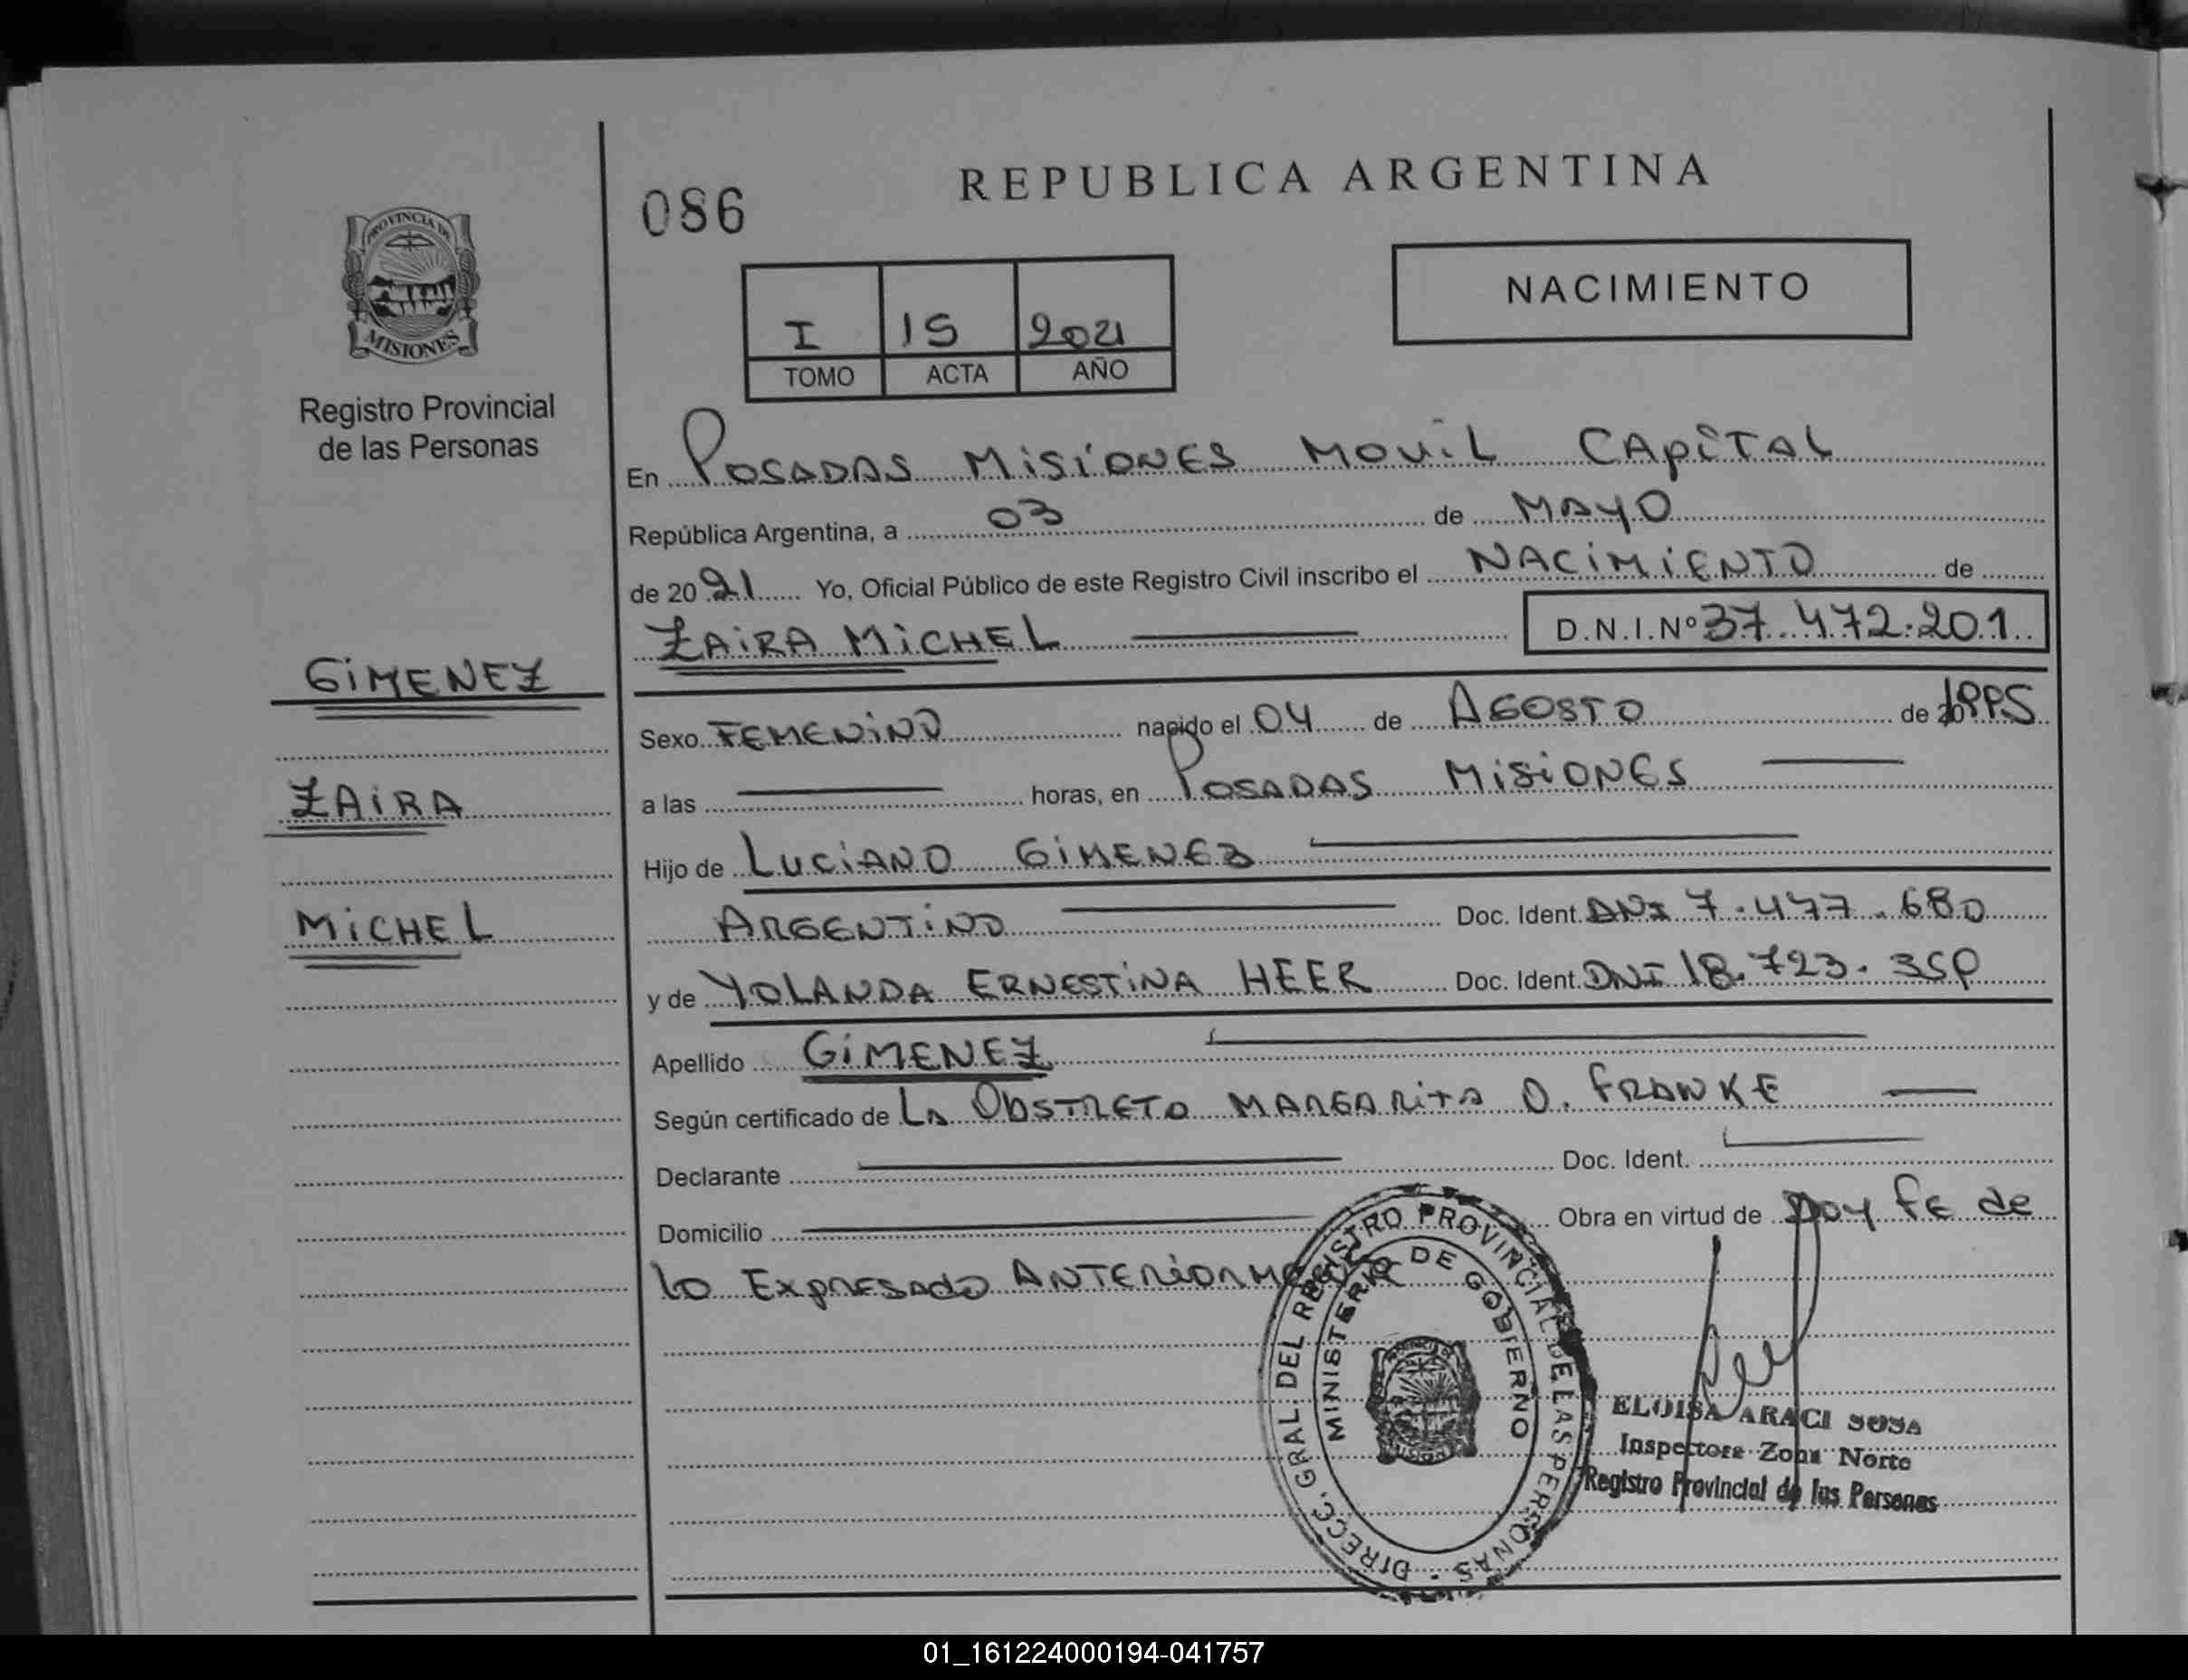 PROVINCIA DE
MISIONES
Registro Provincial
de las Personas
GIMENEZ
ZAIRA
MICHEL
086
REPUBLICA ARGENTINA
NACIMIENTO
I 15 2021
TOMO ACTA AÑO
En POSADAS MISIONES MOVIL CAPITAL
República Argentina, a 03 de MAYO
de 2021 Yo, Oficial Público de este Registro Civil inscribo el NACIMIENTO de
ZAIRA MICHEL D.N.I.Nº 37.472.201
Sexo FEMENINO nacido el 04 de AGOSTO de 1995
a las horas, en POSADAS MISIONES
Hijo de LUCIANO GIMENEZ
ARGENTINO Doc. Ident. DNI 7.477.680
y de YOLANDA ERNESTINA HEER Doc. Ident. DNI 18.723.359
Apellido GIMENEZ
Según certificado de LA OBSTRETA MARGARITA O. FRANKE
Declarante Doc. Ident.
Domicilio Obra en virtud de Doy FE de
lo EXPRESADO ANTERIORMENTE
DIRECC. GRAL. DEL REGISTRO PROVINCIAL DE LAS PERSONAS
MINISTERIO DE GOBIERNO
ELOISA ARACI SOSA
Inspectora Zona Norte
Registro Provincial de las Personas
01_161224000194-041757